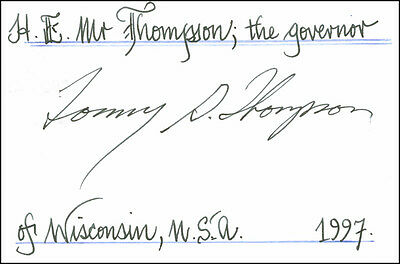 H. E. Mr Thompson; the governor
Tommy G. Thompson
of Wisconsin, U.S.A. 1997.